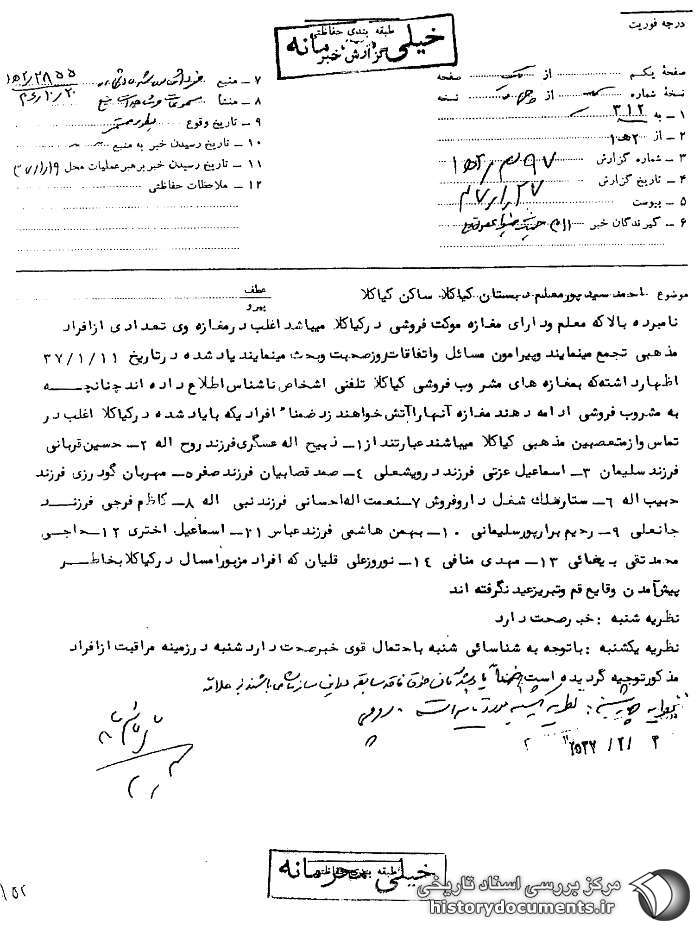 درجه فوریت
طبقه بندی حفاظتی
خیلی محرمانه
گزارش خبر
صفحه یکم از یک صفحه
نسخه شماره از نسخه
۱ – به ۳۱۲
۲ – از ۲ ه‍ ۱
۳ – شماره گزارش
۴ – تاریخ گزارش
۵ – پیوست
۶ – گیرندگان خبر
۷ – منبع
۸ – منشأ
۹ – تاریخ وقوع
۱۰ – تاریخ رسیدن خبر به منبع
۱۱ – تاریخ رسیدن خبر برهبر عملیات محل
۱۲ – ملاحظات حفاظتی
موضوع احمد سید پور معلم دبستان کیاکلا ساکن کیاکلا
عطف
پیرو
نامبرده بالا که معلم و دارای مغازه موکت فروشی در کیاکلا میباشد اغلب در مغازه وی تعدادی از افراد
مذهبی تجمع مینمایند و پیرامون مسائل و اتفاقات روز صحبت و بحث مینمایند یاد شده در تاریخ ۳۷/۱/۱۱
اظهار داشته که بمغازه های مشروب فروشی کیاکلا تلفنی اشخاص ناشناس اطلاع داده اند چنانچـــه
به مشروب فروشی ادامه دهند مغازه آنها را آتش خواهند زد ضمنا" افرادیکه با یاد شده در کیاکلا اغلب در
تماس و از متعصبین مذهبی کیاکلا میباشند عبارتند از ۱– ذبیح اله عسگری فرزند روح اله ۲– حسین قربانی
فرزند سلیمان ۳– اسماعیل عزتی فرزند درویشعلی ۴– صمد قصابیان فرزند صفر ۵– مهربان گودرزی فرزند
حبیب اله ۶– ستار ملک شغل داروفروش ۷– نعمت اله احسانی فرزند نبی اله ۸– کاظم فرجی فرزند
جانعلی ۹– رحیم برارپور سلیمانی ۱۰– بهمن هاشمی فرزند عباس ۱۱– اسماعیل اختری ۱۲– حاجی
محمد تقی بیضائی ۱۳– مهدی منافی ۱۴– نوروز علی قلیان که افراد مزبور امسال در کیاکلا بخاطـــر
پیش آمدن وقایع قم و تبریز عید نگرفته اند
نظریه شنبه : خبر صحت دارد
نظریه یکشنبه : با توجه به شناسائی شنبه باحتمال قوی خبر صحت دارد شنبه در زمینه مراقبت از افراد
مذکور توجیه گردیده است
۲۵۳۷/۲/۲
طبقه بندی حفاظتی
خیلی محرمانه
مرکز بررسی اسناد تاریخی
historydocuments.ir